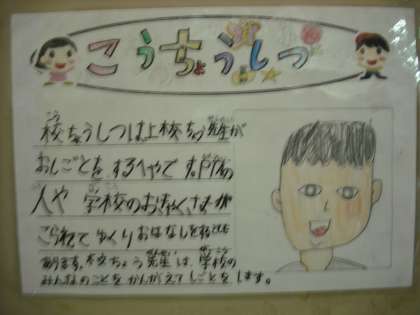 こうちょうしつ
校ちょうしつは、校ちょう先生が
おしごとをするへやです
人や 学校のおきゃくさまが
こられて ゆっくり おはなしを
あります。校ちょう先生は、学校の
みんなのことをかんがえてしごとをします。